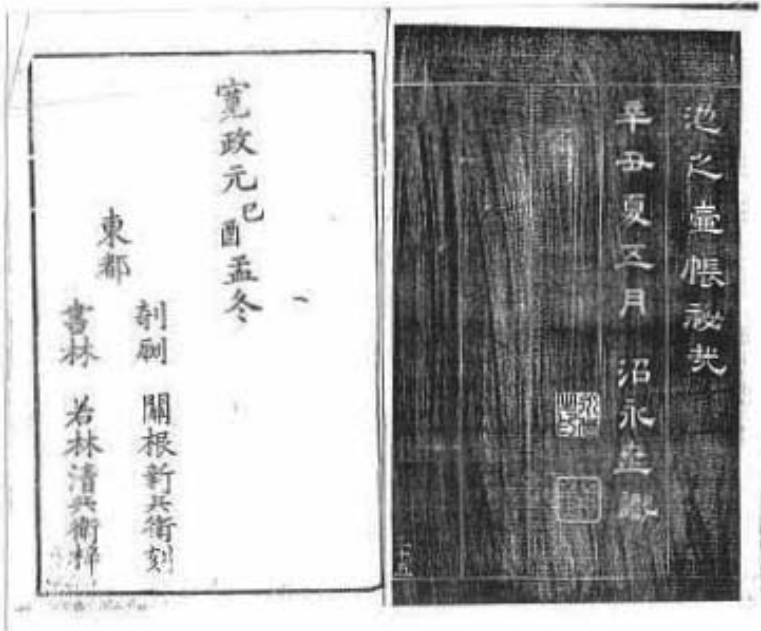 池之壷帳祕哉
辛丑夏五月　沼永
寛政元己酉孟冬
東都
剞劂　關根新兵衛刻
書林　若林清兵衛梓